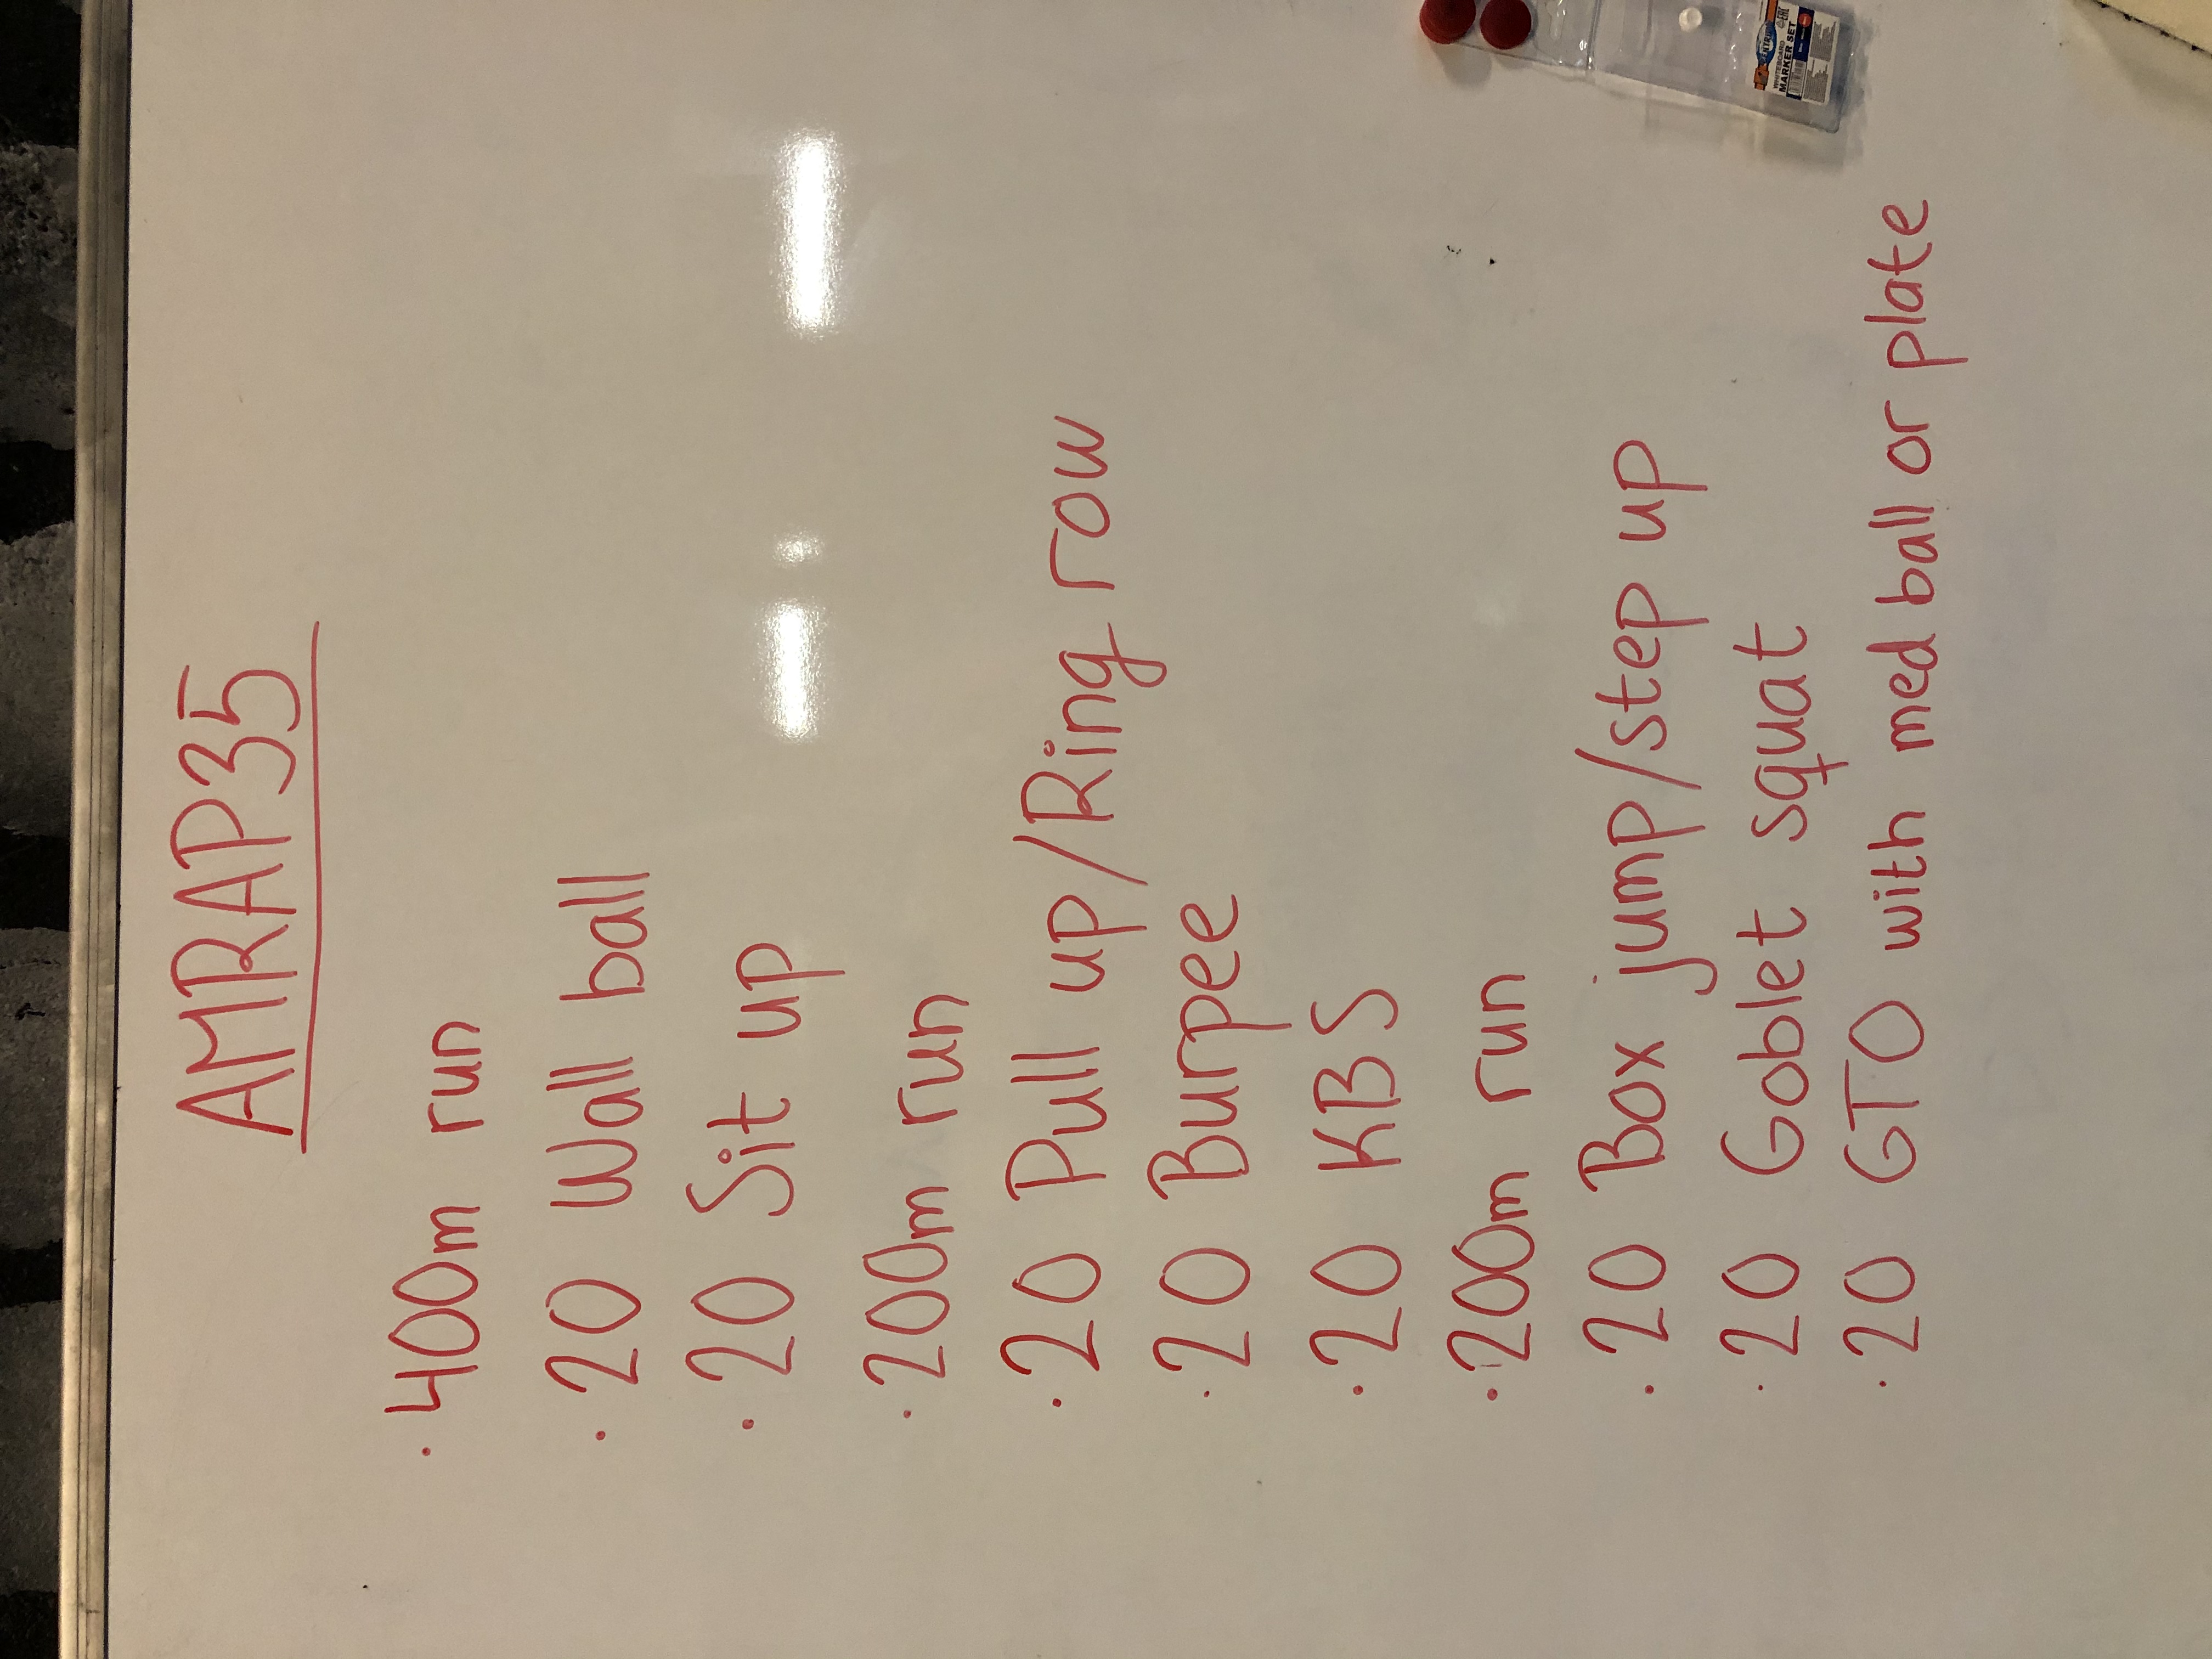 AMRAP35
· 400m run
· 20 Wall ball
· 20 Sit up
· 200m run
· 20 Pull up/Ring row
· 20 Burpee
· 20 KBS
· 200m run
· 20 Box jump/step up
· 20 Goblet squat
· 20 GTO with med ball or plate
WHITEBOARD
MARKER SET